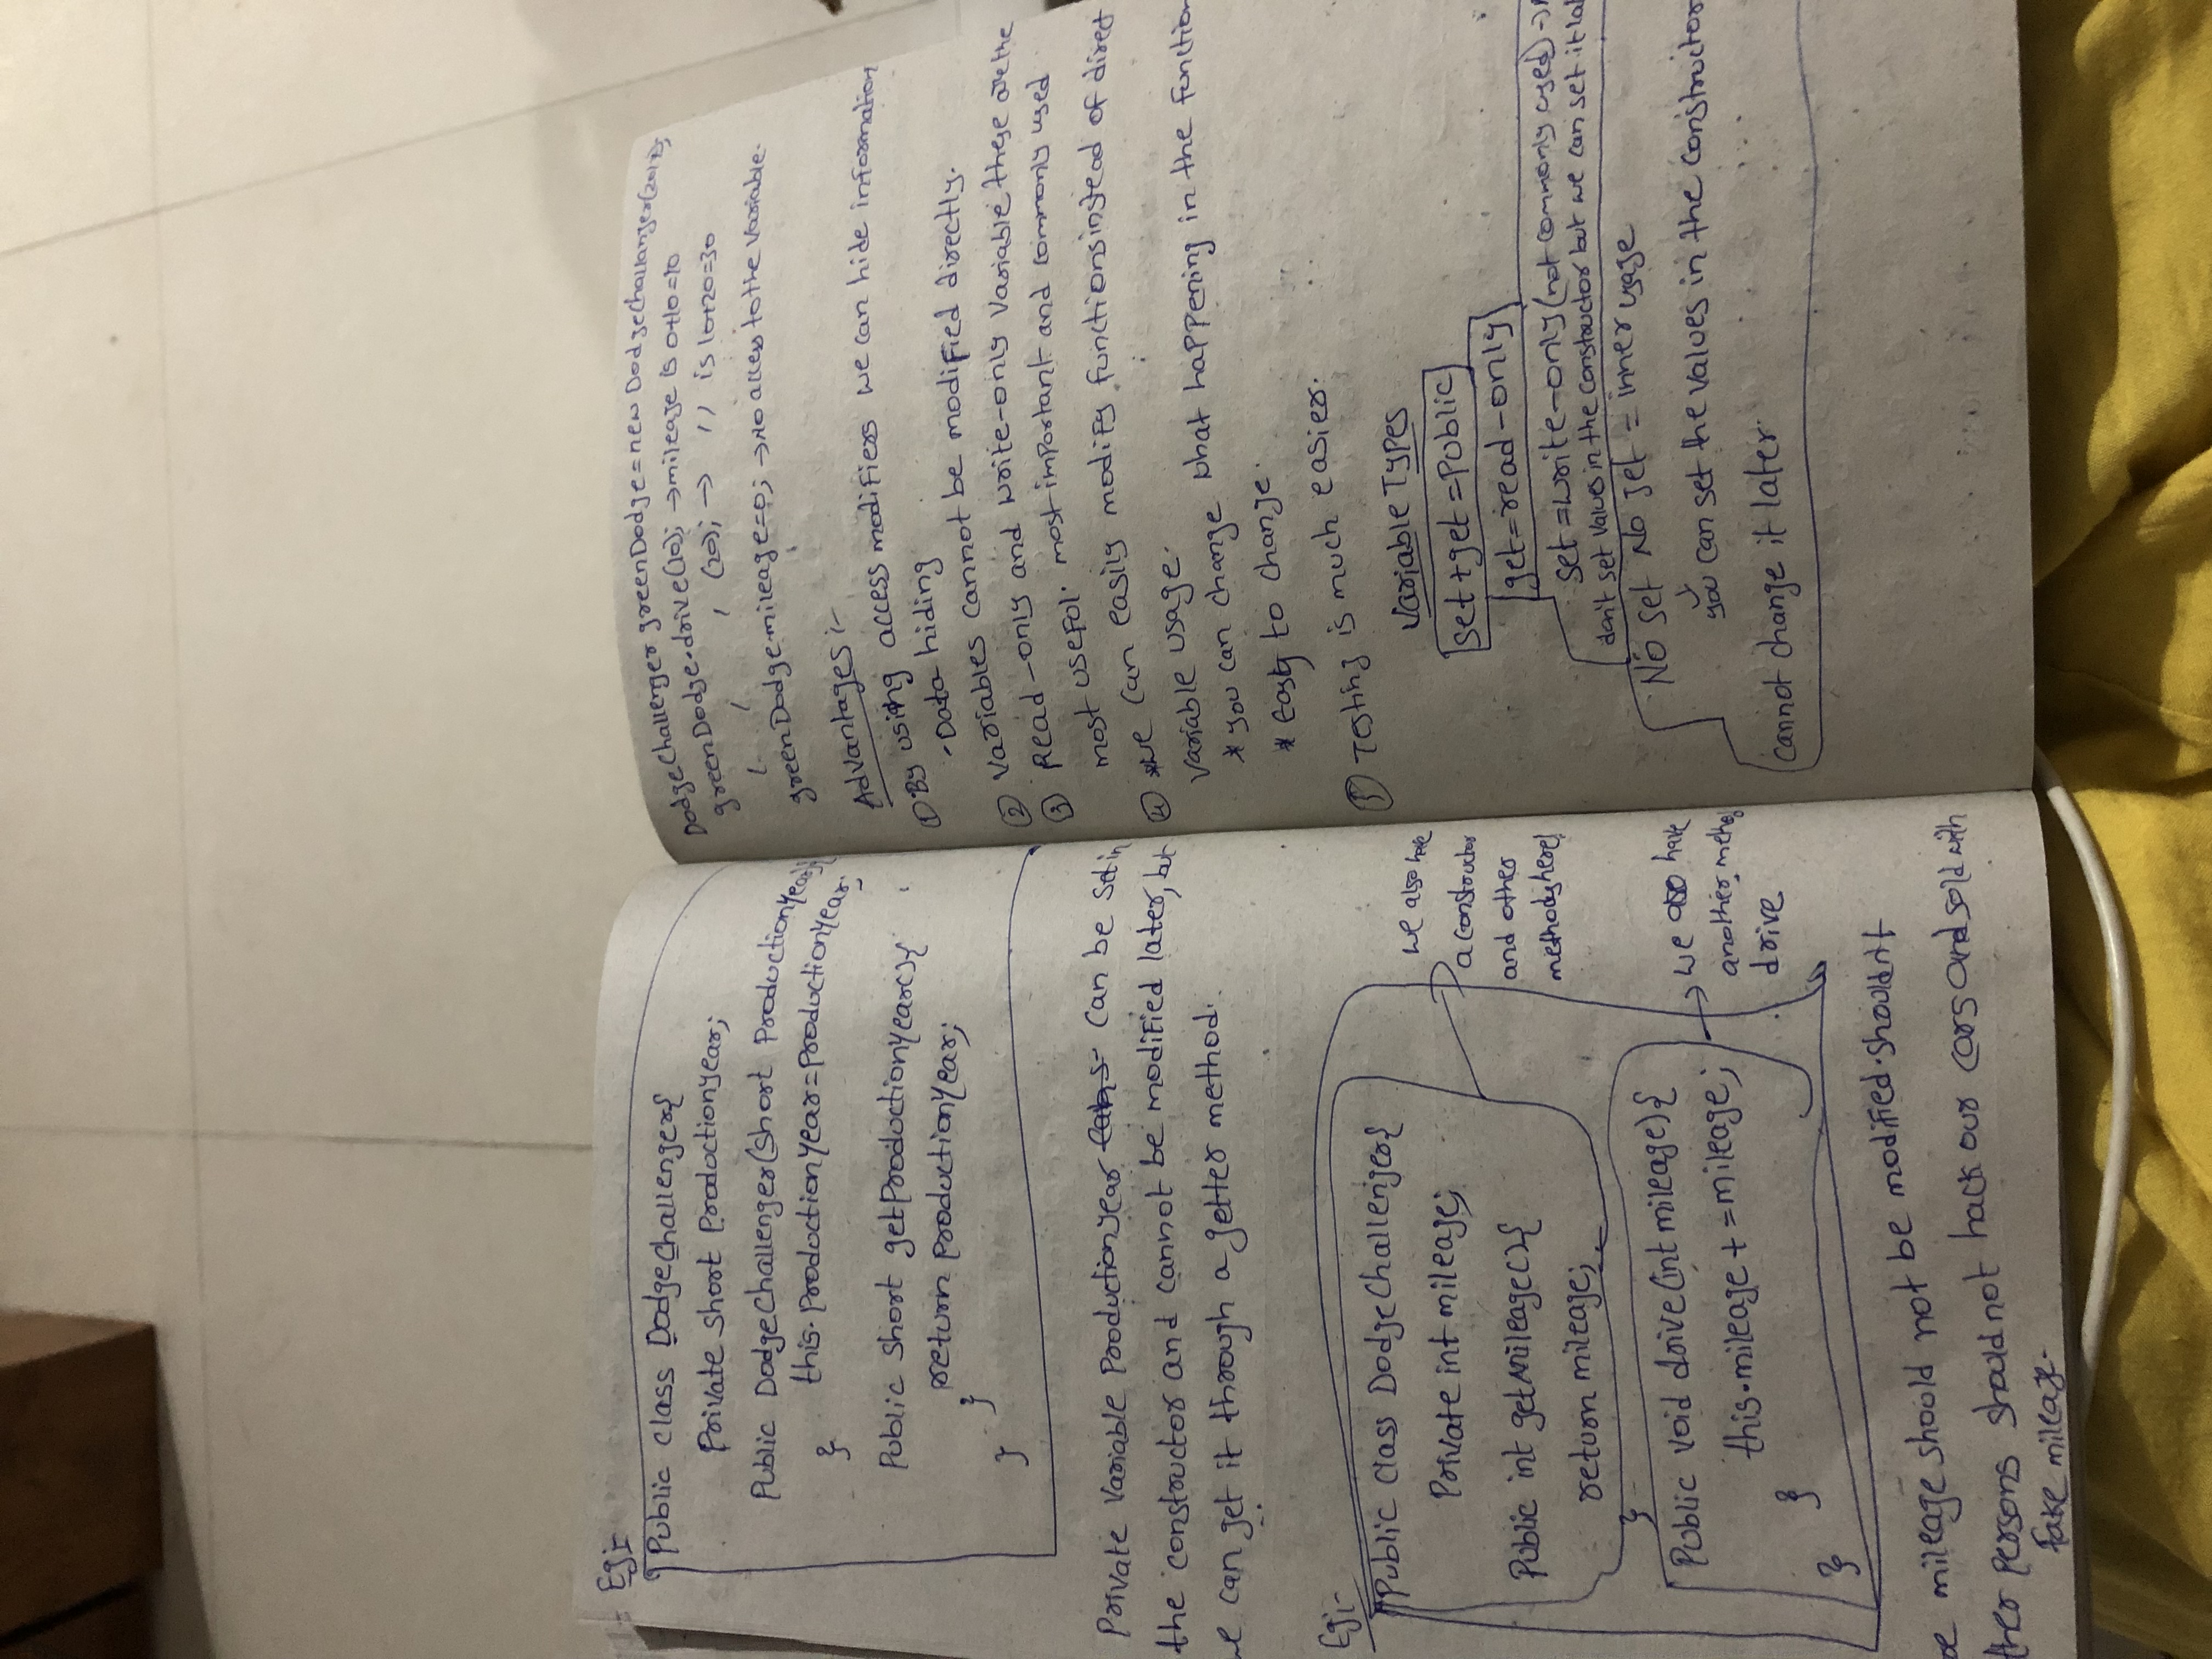 Eg:-
Public class DodgeChallenger{
Private short Productionyear;
Public DodgeChallenger(short Productionyear){
this.ProductionYear=ProductionYear;
}
Public short getProductionyear(){
return ProductionYear;
}
}
Private Variable Productionyear can be set in
the constructor and cannot be modified later, but
we can get it through a getter method.
Eg:-
Public class DodgeChallenger{
Private int mileage;
Public int getMileage(){
return mileage;
}
we also have
a constructor
and other
methods here!
Public void drive(int mileage){
this.mileage +=mileage;
}
}
we also have
another method
drive
mileage should not be modified. shouldn't
persons should not hack our cars and sold with
fake mileage.
DodgeChallenger greenDodge=new DodgeChallanger(
greenDodge.drive(10); →mileage is 0+10=10
, , , (20); → ,, is 10+20=30
greenDodge.mileage=0; →No access to the Variable.
Advantages :-
① By using access modifiers we can hide information
-Data hiding
② Variables cannot be modified directly.
③ Read-only and write-only Variable these are the
most useful. most important and commonly used
④ *we can easily modify functions instead of direct
Variable usage.
* you can change what happening in the function
* Easy to change.
⑤ Testing is much easier.
Variable Types
set+get=Public
get=read-only
set=write-only (not commonly used) →
don't set values in the constructor but we can set it
No set No get = inner usage
you can set the values in the constructor
cannot change it later.